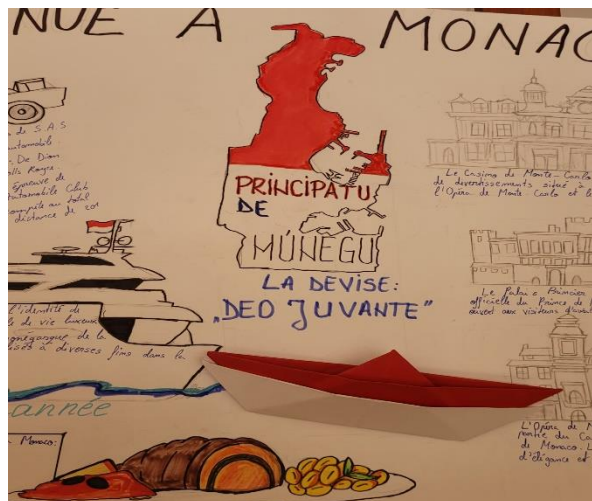 NUE A MONAC
PRINCIPATU
DE
MÚNEGU
LA DEVISE:
„DEO JUVANTE"
de S.A.S
Automobile.
De Dion
Rolls Royce.
épreuve de
Automobile Club
au total
distance de
l'identité de
de vie luxueux
de la
à diverses fins dans la
année
Monaco:
Le Casino de Monte-Carlo
de divertissements situé à
l'Opéra de Monte-Carlo et le
Le Palais Princier
officielle du Prince de
ouvert aux visiteurs
L'Opéra de M
partie du Ca
de Monaco. L
d'élégance et